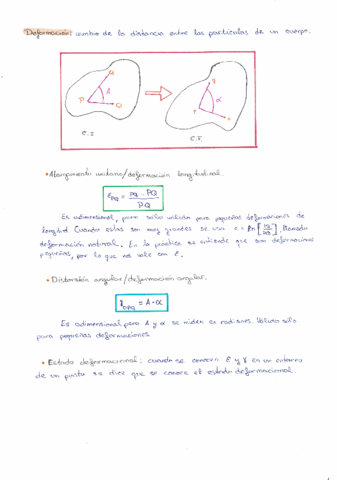 Deformación: cambio de la distancia entre las partículas de un cuerpo.
Q
P A O
C.I
q
r α
C.F.
• Alargamiento unitario/deformación longitudinal.
ε_PQ = pq - PQ / PQ
Es adimensional, pero sólo válida para pequeñas deformaciones de
longitud. Cuando estas son muy grandes se usa e = ln [pq/PQ], llamada
deformación natural. En la práctica se entiende que son deformaciones
pequeñas, por lo que nos vale con ε.
• Distorsión angular/deformación angular.
γ_OPQ = A-α
Es adimensional pero A y α se miden en radianes. Válido sólo
para pequeñas deformaciones.
• Estado deformacional: cuando se conocen ε y γ en un entorno
de un punto se dice que se conoce el estado deformacional.